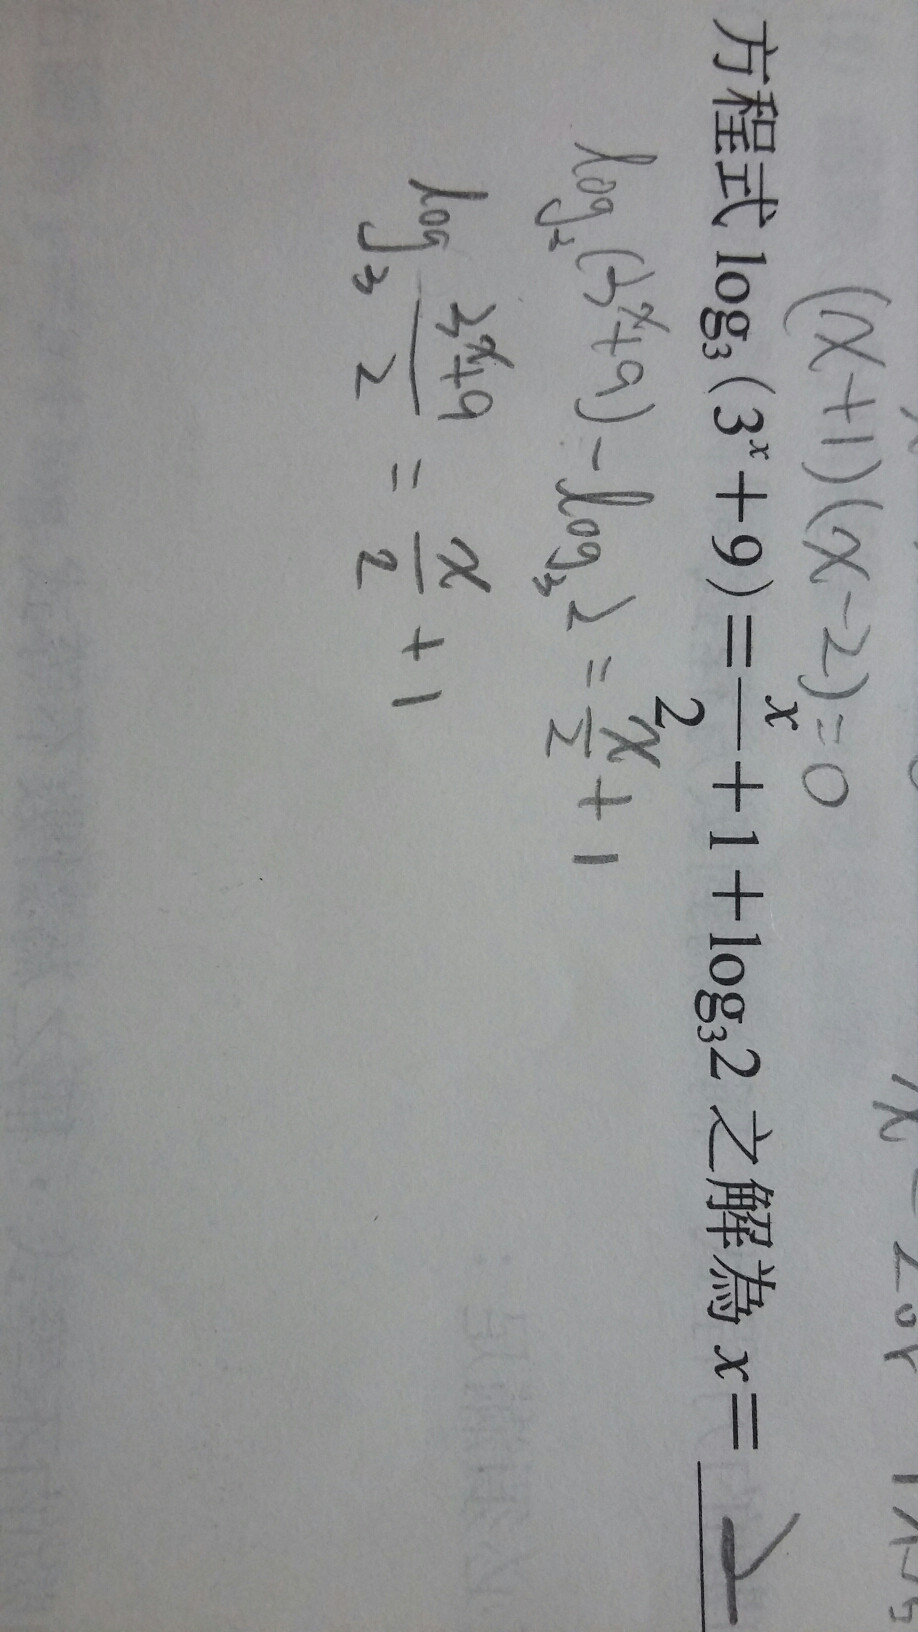 (x+1)(x-2)=0
方程式 log₃(3ˣ+9)=x/2+1+log₃2 之解為 x=2
log₃(3ˣ+9)-log₃2=x/2+1
log₃ (3ˣ+9)/2 = x/2+1